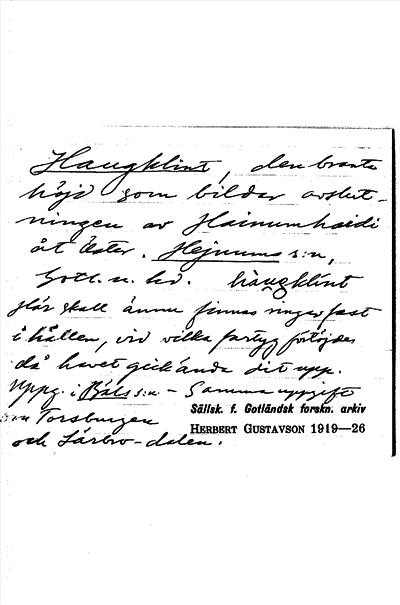 Haugklint, den branta
höjd som bildar avslut-
ningen av Hainumhaidi
åt Öster. Hejnums s:n,
Gotl. n. hd. hàugklint
Här skall ännu finnas ringar fast
i hällen, vid vilka fartyg förtöjdes
då havet gick ända dit upp.
Uppg. i Bäls s:n. – Samma uppgift
om Torsburgen
och Lärbro-dalen.
Sällsk. f. Gotländsk forskn. arkiv
HERBERT GUSTAVSON 1919—26